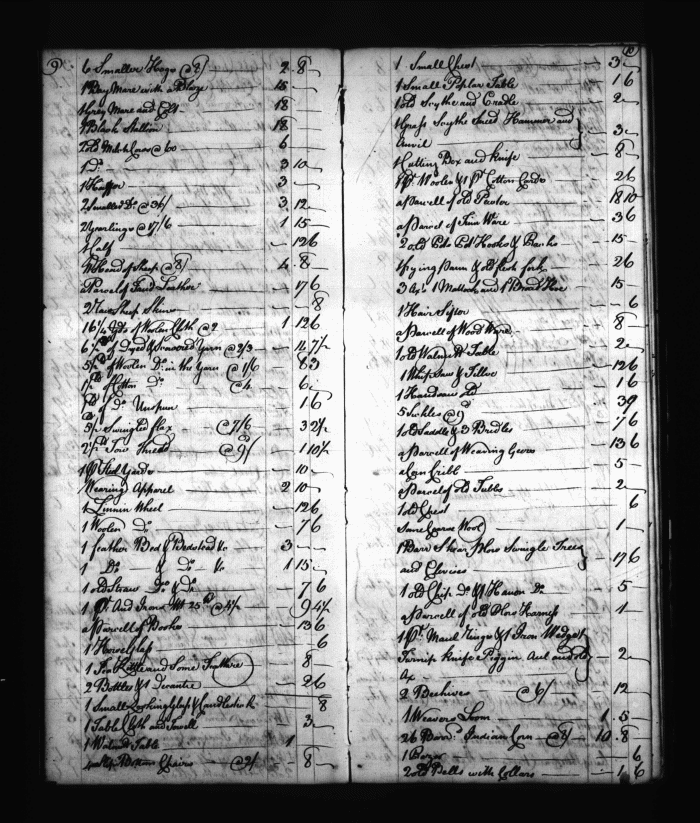 9
6 Smaller Hogs @ 8/ 2 - 8 -
1 Bay Mare with a Blaze 15 -
1 Grey Mare and Colt 18
1 Black Stallion 18
2 old Milch Cows @ 60 6 -
1 Do 3 10
1 Heiffer 3 -
2 Smaller Do @ 36/ 3 12
2 Yearlings @ 17/6 1 15
1 Calf 12 6
Head of Sheep @ 8/ 4 - 8 -
a Parcel of Leather 17 6
2 Sheep Skins 8
16 1/4 Yds of Woolen Cloth @ 2 1 12 6
6 1/2 lb of Dyed & Scowered Yarn @ 2/3 14 7 1/2
5 1/2 lb of Woolen Do in the Yarn @ 1/6 8 3
1 1/2 lb of Cotton Do @ 4 6
of Do Unspun 1 6
5 1/2 Swingled flax @ 7/6 3 2 1/2
2 1/2 lb Tow @ 9 1 10 1/2
1 pr Yards 10 -
Wearing Apparel 2 10 -
1 Linnin Wheel 12 6
1 Woolen do 7 6
1 feather Bed & Bedstead &c 3 -
1 Do - Do &c 1 15
1 old Straw Do & Do 7 6
1 pr And Irons Wt 25 lb @ 4 1/2 9 4 1/2
a Parcell of Books 13 6
1 Hour Glass 6
1 Tea Kettle and Some 8
2 Bottles & 1 Decanter 2 6
1 Small Looking Glass & Candlestick 8
1 Table Cloth and Towell 3
1 Walnut Table 1
Bottom Chairs @ 2/ 8 -
1 Small Chest 3 -
1 Small Poplar Table 1 6
1 old Scythe and Cradle 2 -
1 Grass Scythe Sneed Hammer and
Anvil 3 -
1 Cutting Box and Knife 8 -
1 Pr Woolen & 1 Pr Cotton Cards 2 6
a Parcell of old Pewter 18 10
a Parcel of Tinn Ware 3 6
2 old Pots Pot Hooks & Racks 15 -
1 frying Pann & old flesh fork 2 6
3 Axs 1 Mattock and 1 Broad Hoe 15 -
1 Hair Sifter 6
a Parcell of Wood Ware 8 -
1 old Walnutt Table 2 -
1 Whip Saw & Tiller 12 6
1 Handsaw old 1 6
5 Sickles @ 9d 3 9
1 old Saddle & 3 Bridles 7 6
a Parcell of Weaving Geers 13 6
a Corn Cribb 5 -
a Parcel of old Tubbs 2 -
1 old Chest 6
Some Coarse Wool 1 -
1 Barr Shear Plow Swingle Tree
and Clevises 17 6
1 old Do & 1 Do 5
a Parcell of old Plow Harness 1 -
1 Pr Maul Rings & 1 Iron Wedge
Knife Piggin and old
Ax 2 -
2 Beehives @ 6/ 12
1 Weavers Loom 1 - 5 -
26 Barrs Indian Corn @ 8/ 10 - 8 -
1 Razor 6
2 old Bells with Collars 1 6